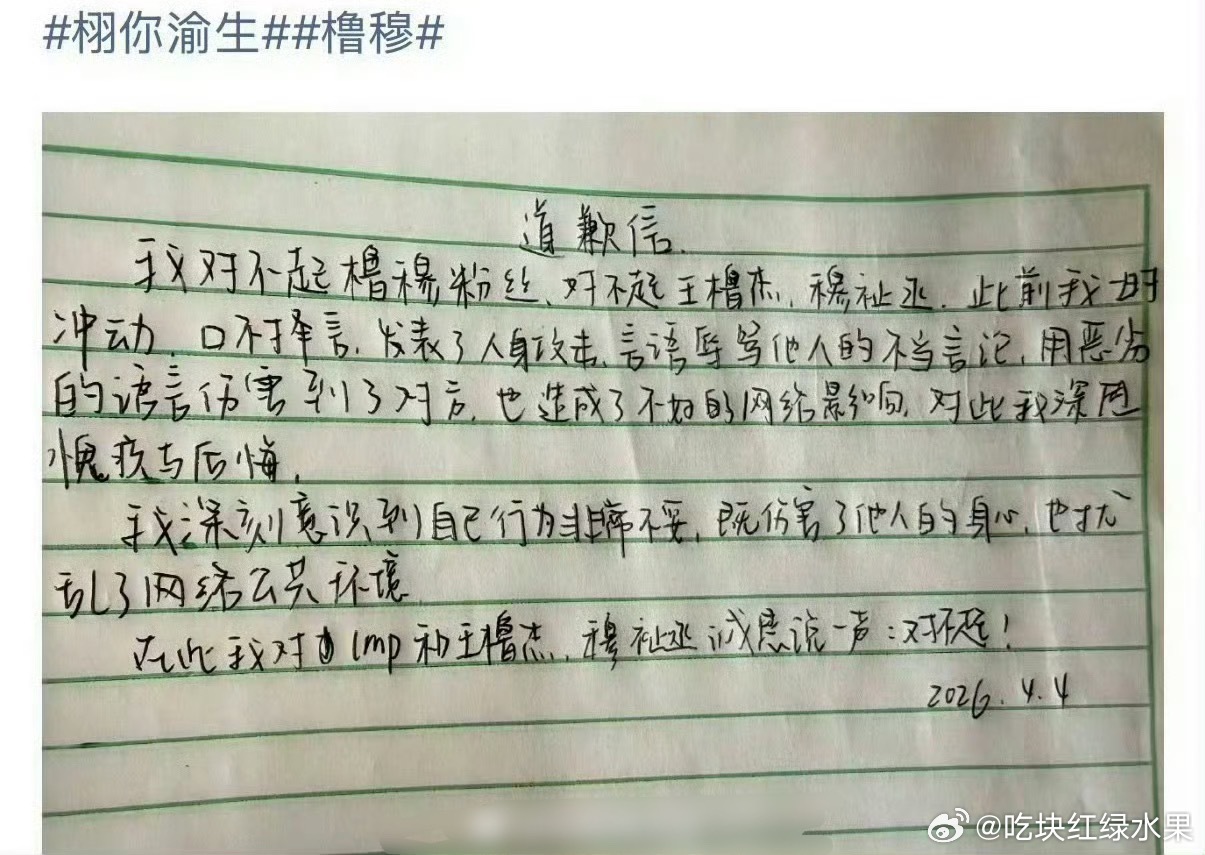 #栩你渝生##橹穆#
道歉信.
我对不起橹穆粉丝、对不起王橹杰、穆祉丞.此前我一时
冲动,口不择言,发表了人身攻击、言语辱骂他人的不当言论,用恶劣
的语言伤害到了对方,也造成了不好的网络影响,对此我深感
愧疚与后悔,
我深刻意识到自己行为非常不妥,既伤害了他人的身心,也扰
乱了网络公共环境
在此我对lmp和王橹杰、穆祉丞诚恳说一声:对不起!
2026.4.4
@吃块红绿水果